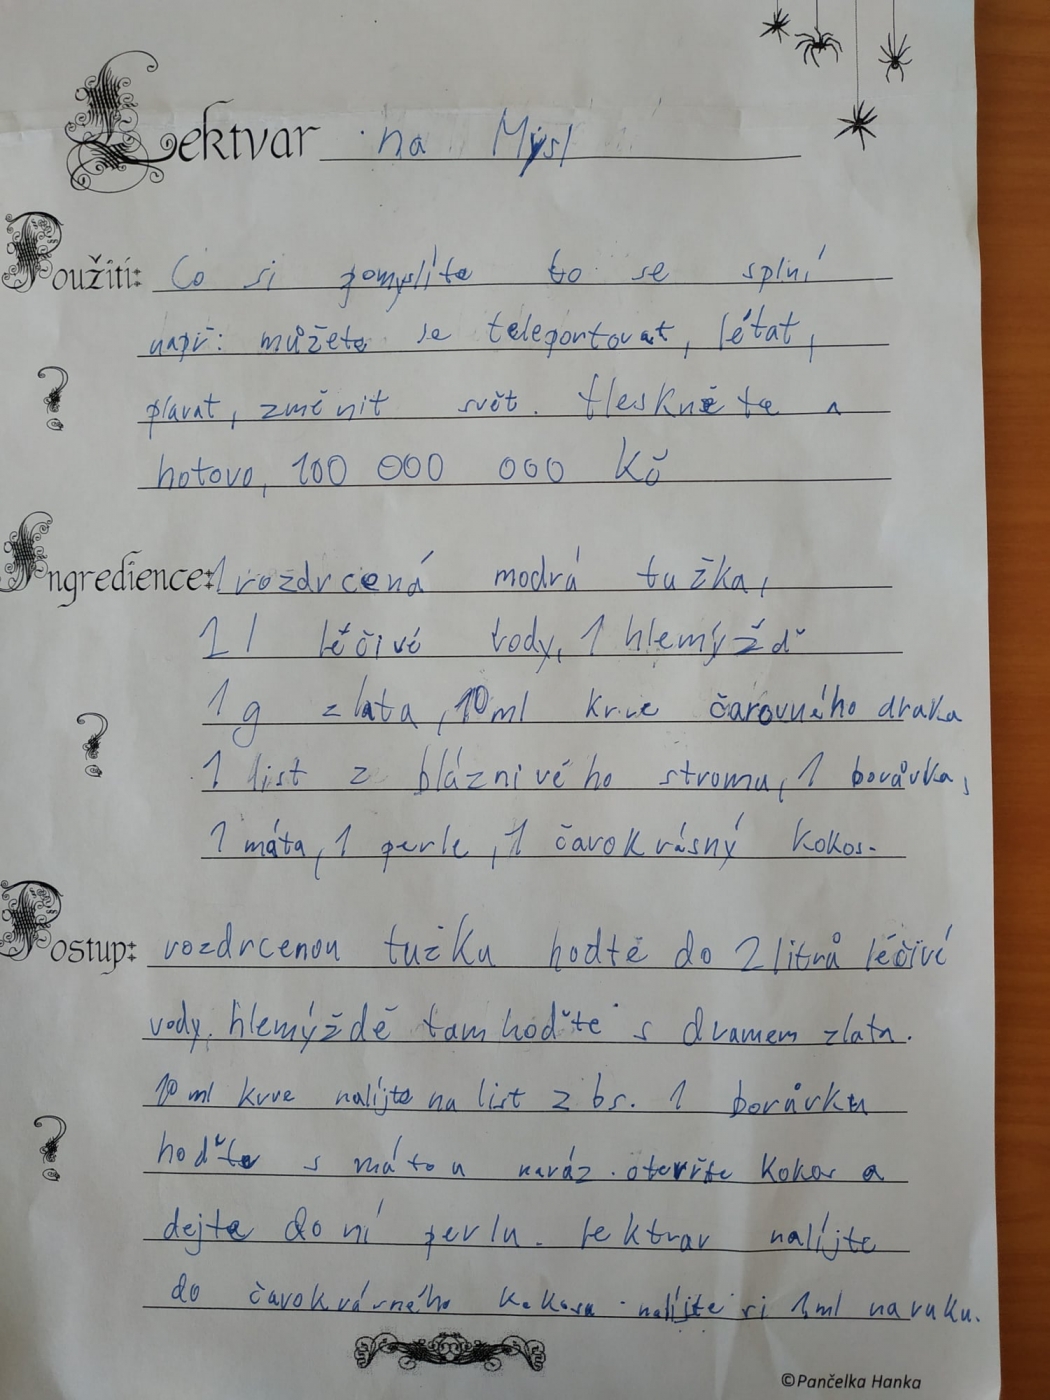 Lektvar na Mysl
Použití: Co si pomyslíte to se splní
např: můžete se teleportovat, létat,
plavat, změnit svět. tleskněte a
hotovo, 100 000 000 Kč
Ingredience: 1 rozdrcená modrá tužka,
2 l léčivé vody, 1 hlemýžď
1 g zlata, 10 ml krve čarovného draka
1 list z bláznivého stromu, 1 borůvka,
1 máta, 1 perle, 1 čarokrásný kokos.
Postup: rozdrcenou tužku hodtě do 2 litrů léčivé
vody. hlemýždě tam hoďte s dramem zlata.
10 ml krve nalíjte na list z bs. 1 borůvku
hoďte s mátou naráz. otevřte kokos a
dejte do ní perlu. lektvar nalíjte
do čarokrásného kokosu nalíjte si 1ml na ruku.
©Pančelka Hanka